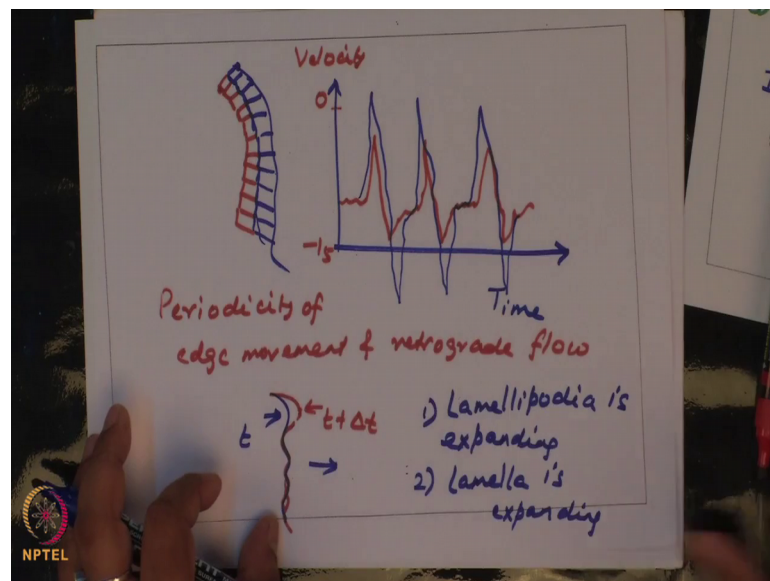 Velocity
0
-15
Time
Periodicity of
edge movement & retrograde flow
t
t+Δt
1) Lamellipodia is
expanding
2) Lamella is
expanding
NPTEL